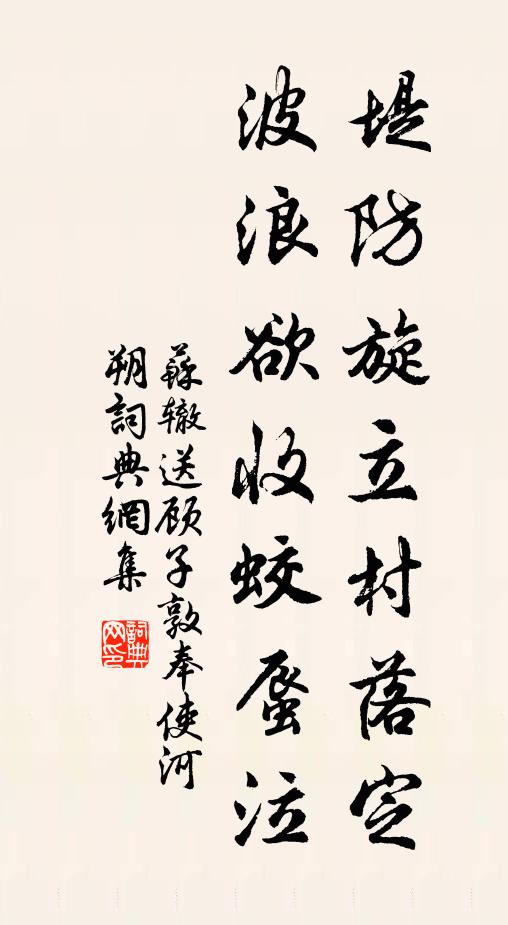 堤防旋立村落定
波浪欲收蛟蜃泣
蘇辙送顾子敦奉使河
朔詞典網集
詞典网印